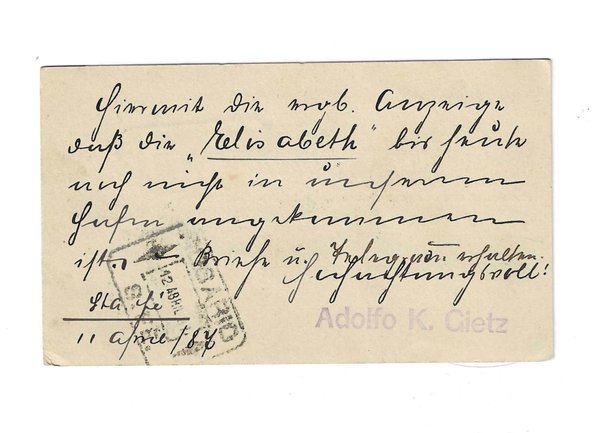 Hiermit die ergb. Anzeige
daß die „Elisabeth“ bis heute
noch nicht in unserem
Hafen angekommen
ist. Briefe u. Telegramm erhalten.
Hochachtungsvoll!
Sta fé
11 April/87
ROSARIO
12 ABRIL
Adolfo K. Gietz